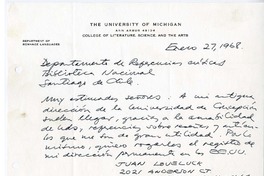 THE UNIVERSITY OF MICHIGAN
ANN ARBOR 48104
COLLEGE OF LITERATURE, SCIENCE, AND THE ARTS
DEPARTMENT OF
ROMANCE LANGUAGES
Enero 27, 1968.
Departamento de Referencias críticas
Biblioteca Nacional
Santiago de Chile.
Muy estimados señores: A mi antigua
dirección de la Universidad de Concepción
suelen llegar, gracias a la amabilidad
de Uds, referencias sobre recortes y artícu-
los que me son de gran utilidad. Por lo
mismo, quiero rogarles el registro de
mi dirección permanente en los EE.UU.
JUAN LOVELUCK
2021 ANDERSON CT.